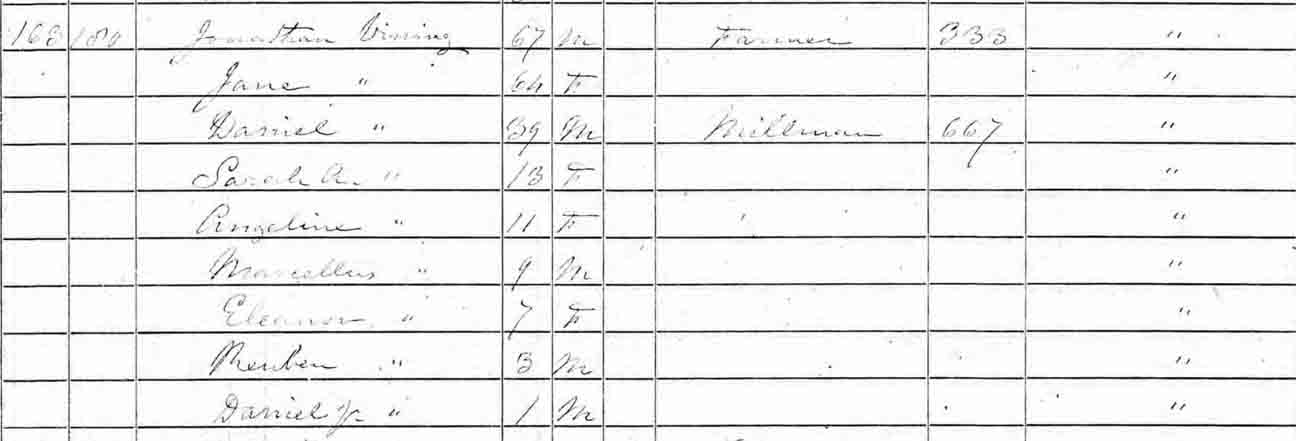 163 180 Jonathan Vining 67 M Farmer 333 "
Jane " 64 F "
Daniel " 39 M Millman 667 "
Sarah A. " 13 F "
Angeline " 11 F "
Marcellus " 9 M "
Eleanor " 7 F "
Reuben " 3 M "
Daniel Jr " 1 M "